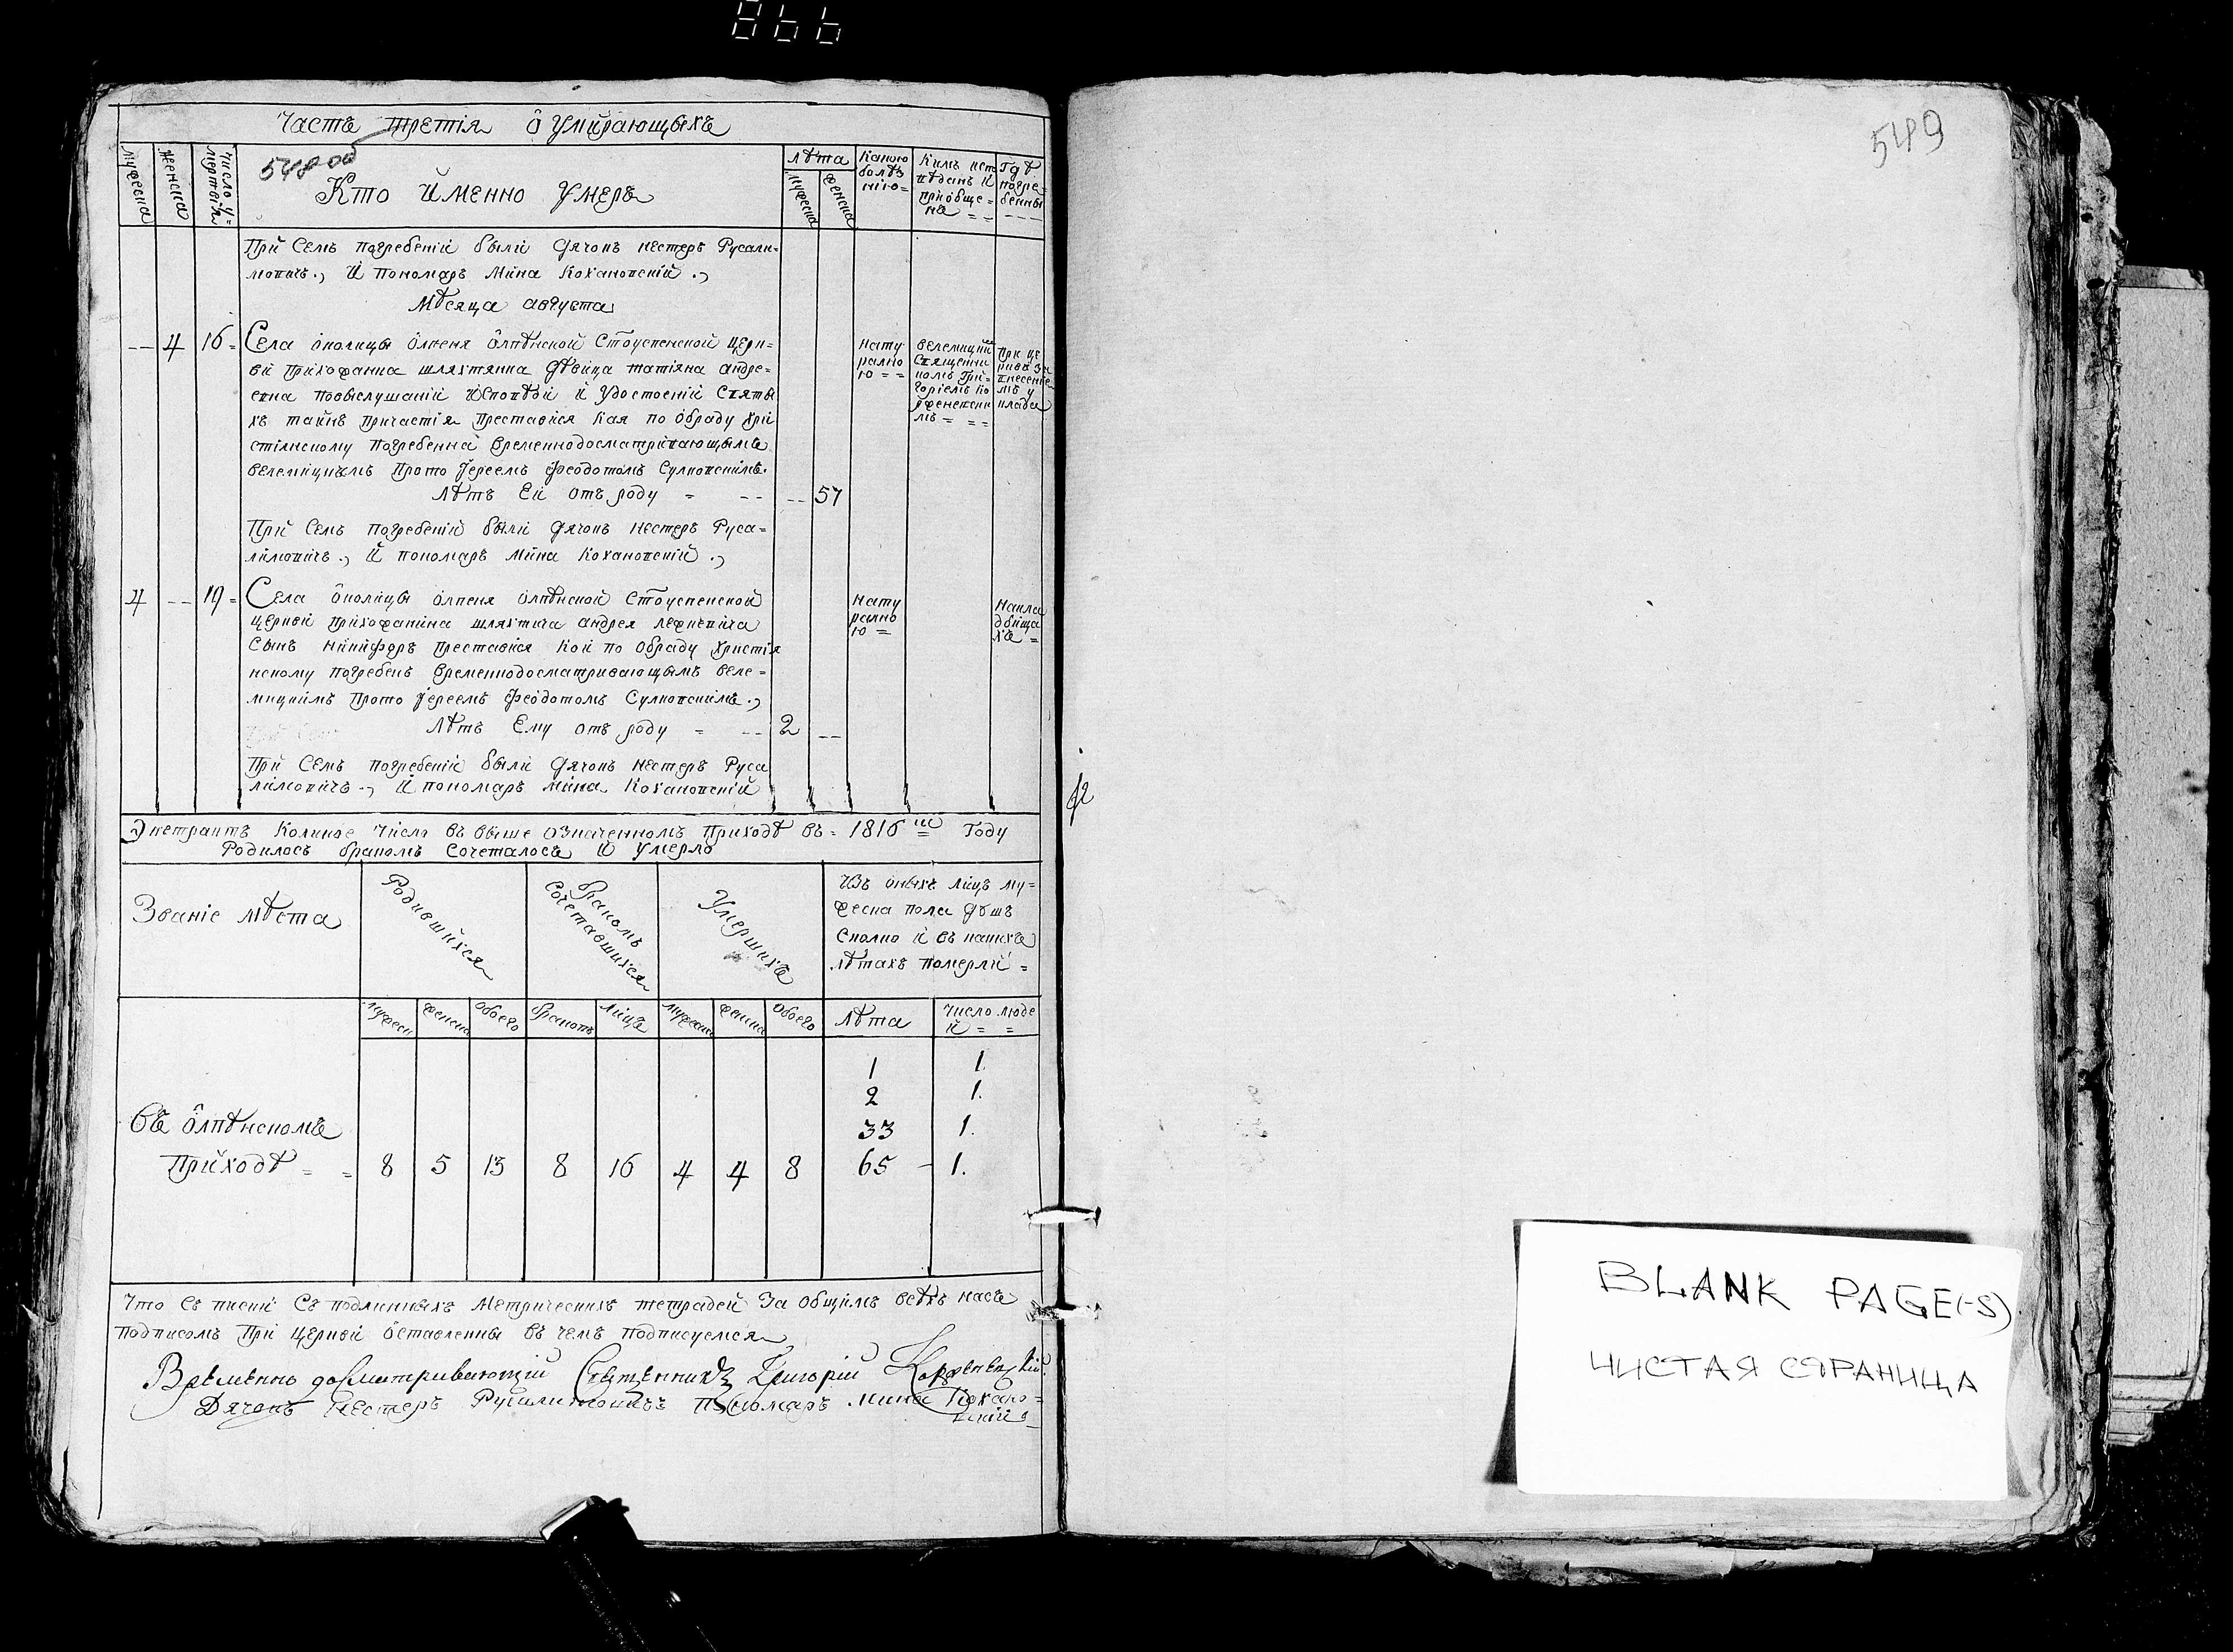 866
Часть третія о умирающыхъ
548 об
мужеска
женска
число умертвія
Кто именно умеръ
лѣта
мужеска
женска
Какою
болѣз
нію =
Кимъ испо
вѣданъ и
приобще =
нъ = =
Гдѣ
погре =
бенны
При семъ погребеніи были дячокъ Нестеръ Русали =
мовичъ ., и пономаръ Мина Кохановскій .,
Мѣсяца августа
-- 4 16 =
Села околицы Олпеня Олпѣнской Стоуспенской церк =
ви прихожанка шляхтянка дѣвица Татіяна Андре =
евна повыслушаніи исповѣди и удостоеніи святы
хъ тайнъ причастія преставися кая по обряду хри
стіянскому погребенна временнодосматривающымъ
велемицкимъ прото іереемъ Феодотомъ Сулковскимъ.
лѣтъ ей отъ роду = -- -- 57
нату
ралною = =
велемицкимъ
священни
комъ Гри =
горіемъ Ко
рженевски
мъ = = =
При це
ркви за
внесеніе
мъ у
клада
При семъ погребеніи были дячокъ Нестеръ Руса =
лимовичъ ., и пономаръ Мина Кохановскій .,
4 -- 19 =
Села околицы Олпеня Олпѣнской Стоуспенской
церкви прихожанина шляхтича Андрея
сынъ Никифоръ преставися кои по обряду христія
нскому погребенъ временнодосматривающымъ веле =
мицкимъ прото іереемъ Феодотомъ Сулковскимъ .,
лѣтъ ему отъ роду = -- 2 --
нату
рално
ю =
накла
дбища
хъ =
При семъ погребеніи были дячокъ Нестеръ Руса
лимовичъ ., и пономаръ Мина Кохановскій
Экстрактъ коликое число въ выше означенномъ приходѣ въ = 1816 м году
родилось бракомъ сочеталось и умерло
Званіе мѣста
Родившихся
Бракомъ
сочетавшихся
Умершихъ
Изъ оныхъ лицъ му =
жеска пола душъ
сколко и въ какихъ
лѣтахъ померли =
мужеск
женска
обоего
браковъ
лицъ
мужеска
женска
обоего
лѣта
число люде
й = =
1 1.
2 1.
33 1.
Въ Олпѣнскомъ
приходѣ = = 8 5 13 8 16 4 4 8 65 - 1.
Что съ писки съ подлинныхъ метрическихъ тетрадей за общимъ всѣхъ насъ
подписомъ при церкви оставленны въ чемъ подписуемся
Временно досматривающій Священникъ Григорій Корженевскій
Дячокъ Нестеръ Русилимовичъ Пономаръ Мина Кохано =
вскій
549
BLANK PAGE(-S)
ЧИСТАЯ СТРАНИЦА